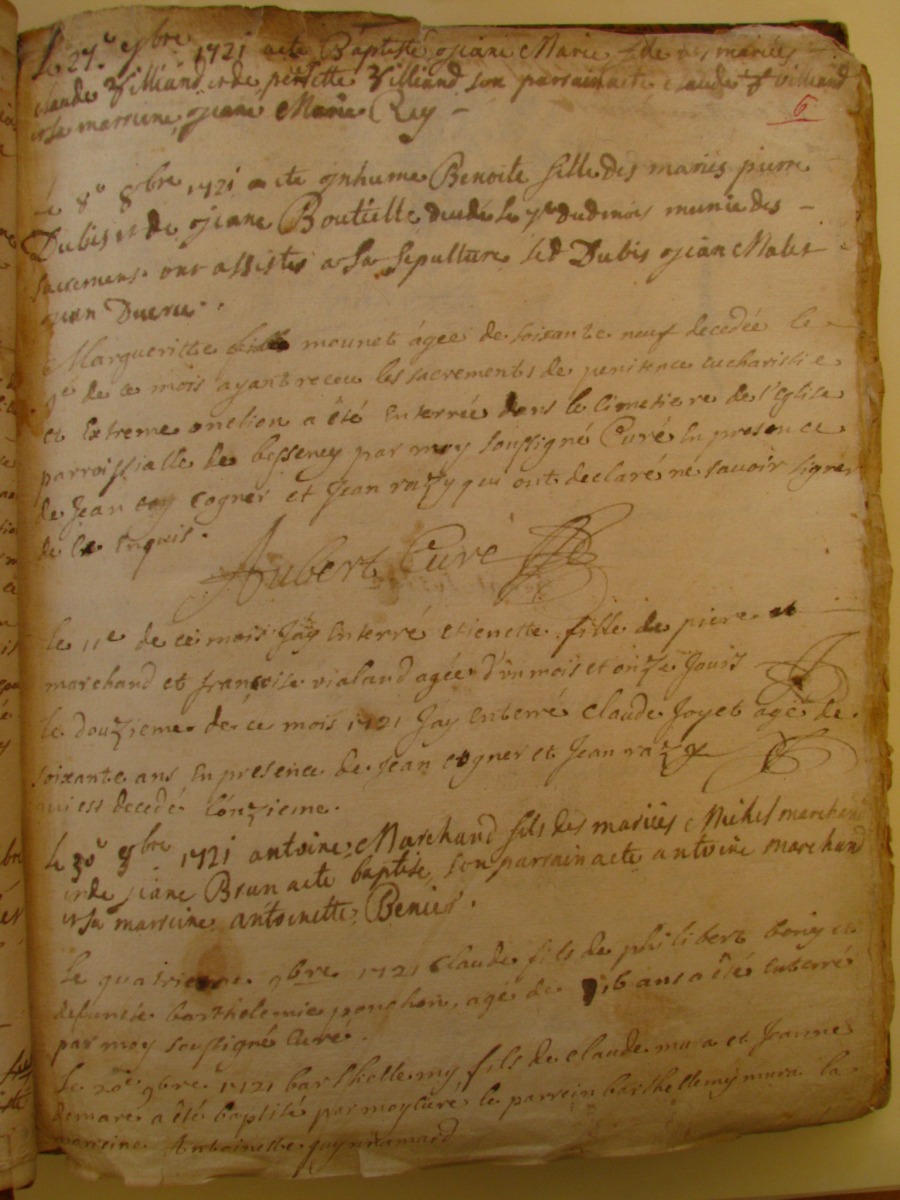 Le 27e 1721 a ete Baptisée jeane Marie f de mariés
claude Villiand et de pernette Villiand son parrain a ete claude Villiand
et sa marreine jeane Marie Rey
6
Le 8e 8bre 1721 a ete inhumé Benoite fille des mariés pierre
Dubis et de jeane Boutielle le 7e dudmois munie des
sacremens ont assistés a sa sepulture led Dubis jean Malet
jean
Margueritte mounet ágeé de soixante neuf decedée le
9e de ce mois ayant receu les sacrements de penitence eucharistie
et Extreme onction a été Enterrée dans le Cimetiere de l'Eglise
parroissialle de besseney par moy soussigné Curé En presence
de Jean cogner et Jean razy qui ont declaré ne savoir signer
de ce Enquis.
Aubert Curé
le 11e de ce mois Jay Enterré etienette fille de piere
marchand et françoise vialand agée d'un mois et onze Jours
le douzieme de ce mois 1721 Jay Enterré claude Joyet agé de
soixante ans En presence de Jean cogner et Jean razy
qui est decedé l'onzieme.
le 30e 8bre 1721 antoine Marchand fils des mariés Michel marchand
et de jeane Brun a ete baptisé, son parrain a ete antoine marchand
et sa marreine antoinette Benier.
Le quatrieme 9bre 1721 Claude fils de philibert et
defunte barthelemie ponchon, agé de 16 ans a été Enterré
par moy soussigné Curé.
Le 20e 9bre 1721 barthellemy fils de claude mura et Jeanne
demare a été baptisé par moy curé, le parrein barthellemy mura la
marreine Antoinette